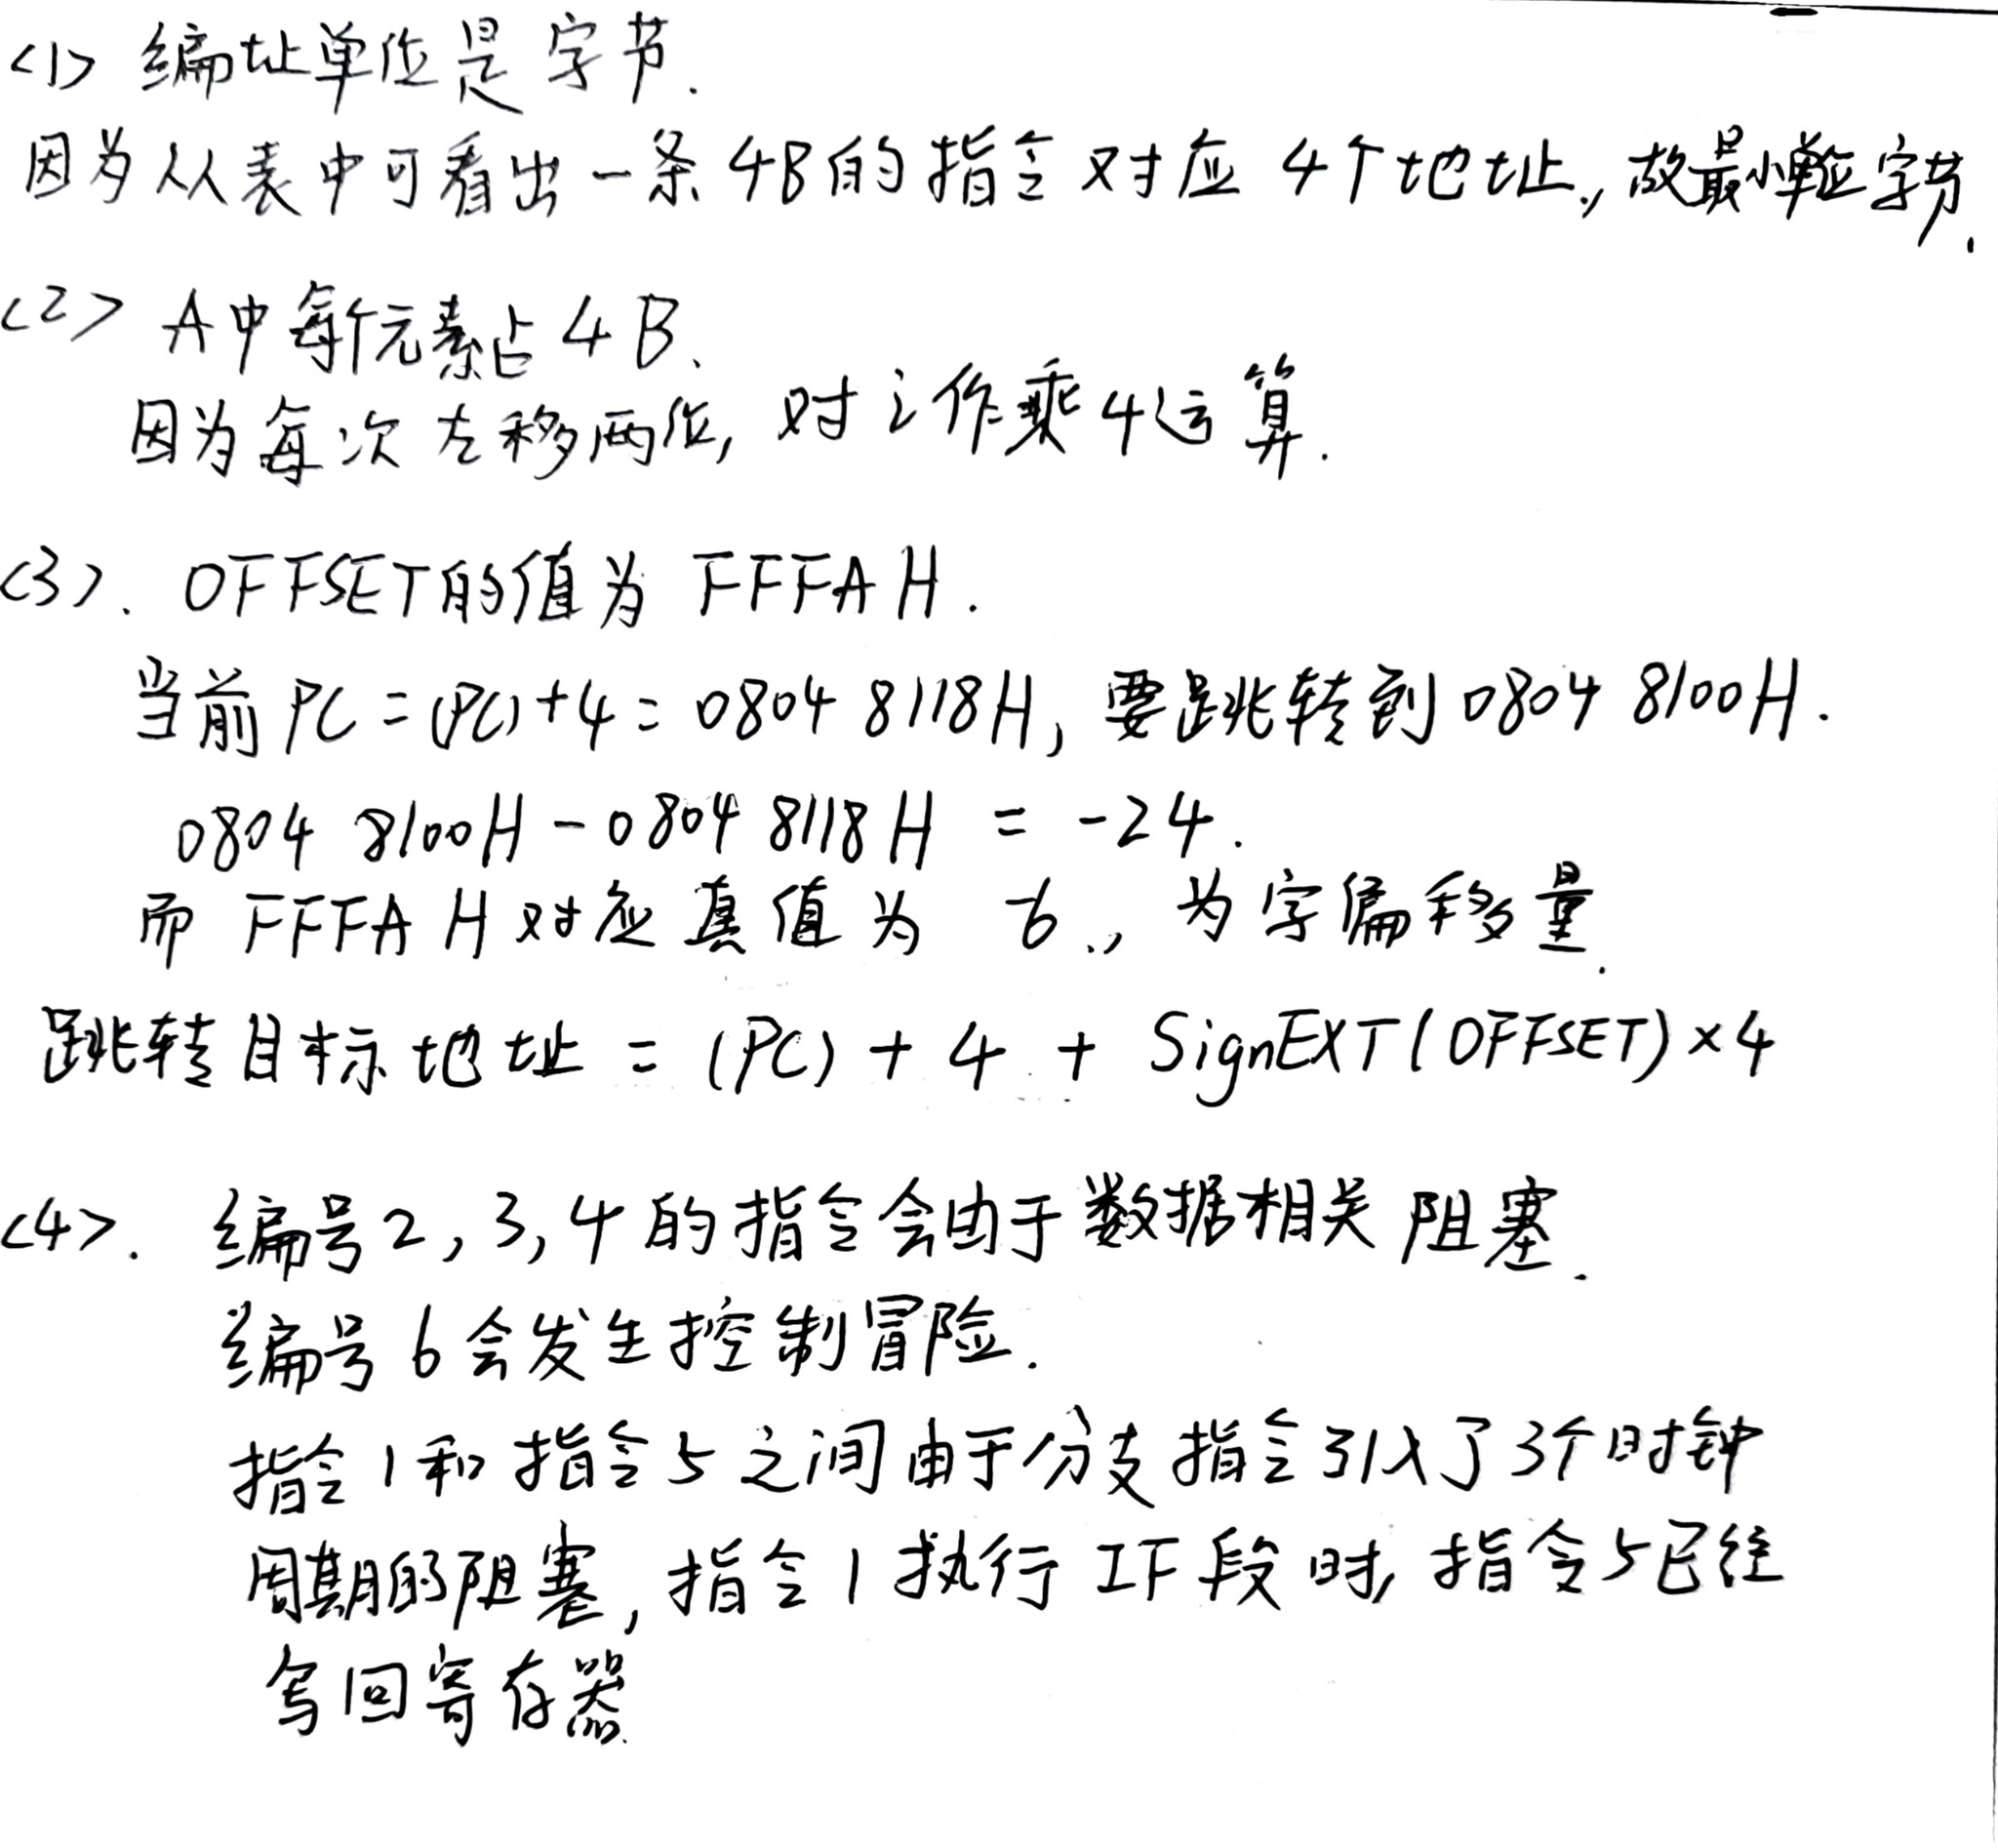 <1> 编址单位是字节.
因为从表中可看出一条4B的指令对应4个地址,故最小单位字节.
<2> A中每个元素占4B.
因为每次左移两位,对i作乘4运算.
<3>. OFFSET的值为 FFFAH.
当前PC=(PC)+4=0804 8118H,要跳转到0804 8100H.
0804 8100H-0804 8118H = -24.
而 FFFA H对应真值为 -6.,为字偏移量.
跳转目标地址 = (PC) + 4 + SignEXT(OFFSET)×4
<4>. 编号2,3,4的指令会由于数据相关阻塞.
编号6会发生控制冒险.
指令1和指令5之间由于分支指令引入了3个时钟
周期的阻塞,指令1执行IF段时,指令5已经
写回寄存器.